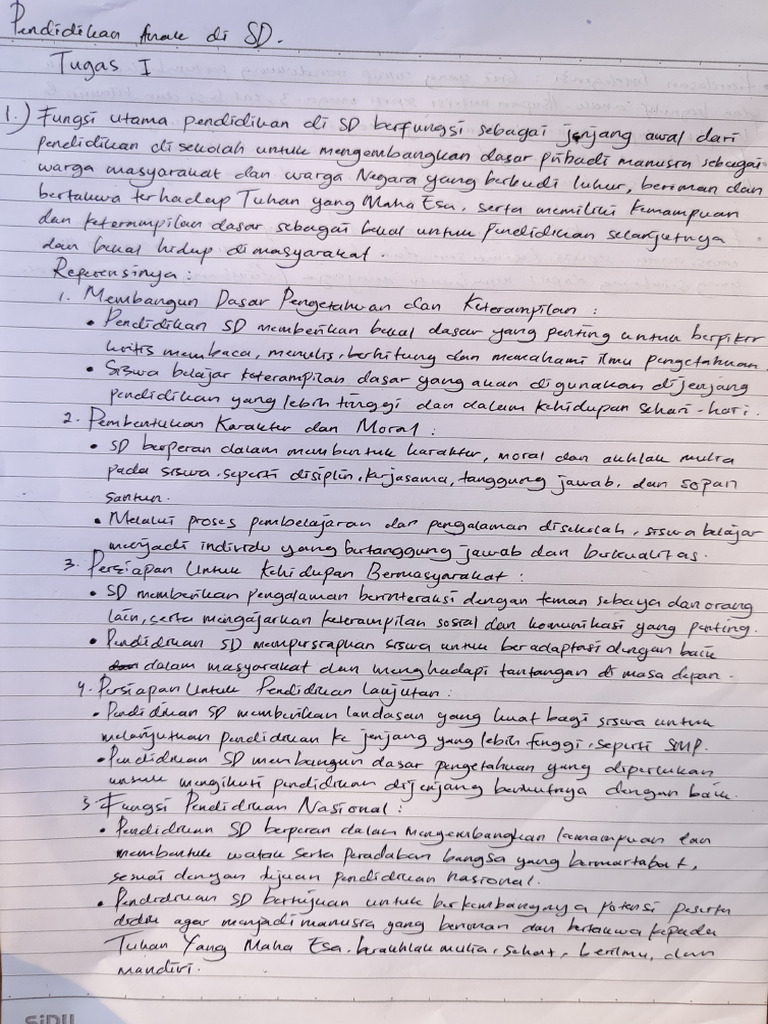 Pendidikan Anak di SD.
Tugas I
1.) Fungsi utama pendidikan di SD berfungsi sebagai jenjang awal dari
pendidikan di sekolah untuk mengembangkan dasar pribadi manusia sebagai
warga masyarakat dan warga Negara yang berbudi luhur, beriman dan
bertakwa terhadap Tuhan yang Maha Esa, serta memiliki kemampuan
dan keterampilan dasar sebagai bekal untuk pendidikan selanjutnya
dan bekal hidup dimasyarakat.
Referensinya :
1. Membangun Dasar Pengetahuan dan Keterampilan :
• Pendidikan SD memberikan bekal dasar yang penting untuk berpikir
kritis membaca, menulis, berhitung dan memahami ilmu pengetahuan.
• Siswa belajar keterampilan dasar yang akan digunakan dijenjang
pendidikan yang lebih tinggi dan dalam kehidupan sehari-hari.
2. Pembentukan Karakter dan Moral :
• SD berperan dalam membentuk karakter, moral dan akhlak mulia
pada siswa, seperti disiplin, kerjasama, tanggung jawab, dan sopan
santun.
• Melalui proses pembelajaran dan pengalaman disekolah, siswa belajar
menjadi individu yang bertanggung jawab dan berkualitas.
3. Persiapan Untuk Kehidupan Bermasyarakat :
• SD memberikan pengalaman berinteraksi dengan teman sebaya dan orang
lain, serta mengajarkan keterampilan sosial dan komunikasi yang penting.
• Pendidikan SD mempersiapkan siswa untuk beradaptasi dengan baik
dalam masyarakat dan menghadapi tantangan di masa depan.
4. Persiapan Untuk Pendidikan Lanjutan :
• Pendidikan SD memberikan landasan yang kuat bagi siswa untuk
melanjutkan pendidikan ke jenjang yang lebih tinggi, seperti SMP.
• Pendidikan SD membangun dasar pengetahuan yang diperlukan
untuk mengikuti pendidikan dijenjang berikutnya dengan baik.
5 Fungsi Pendidikan Nasional :
• Pendidikan SD berperan dalam mengembangkan kemampuan dan
membentuk watak serta peradaban bangsa yang bermartabat,
sesuai dengan tujuan pendidikan nasional.
• Pendidikan SD bertujuan untuk berkembangnya potensi peserta
didik agar menjadi manusia yang beriman dan bertakwa kepada
Tuhan Yang Maha Esa, berakhlak mulia, sehat, berilmu, dan
mandiri.
SiDU